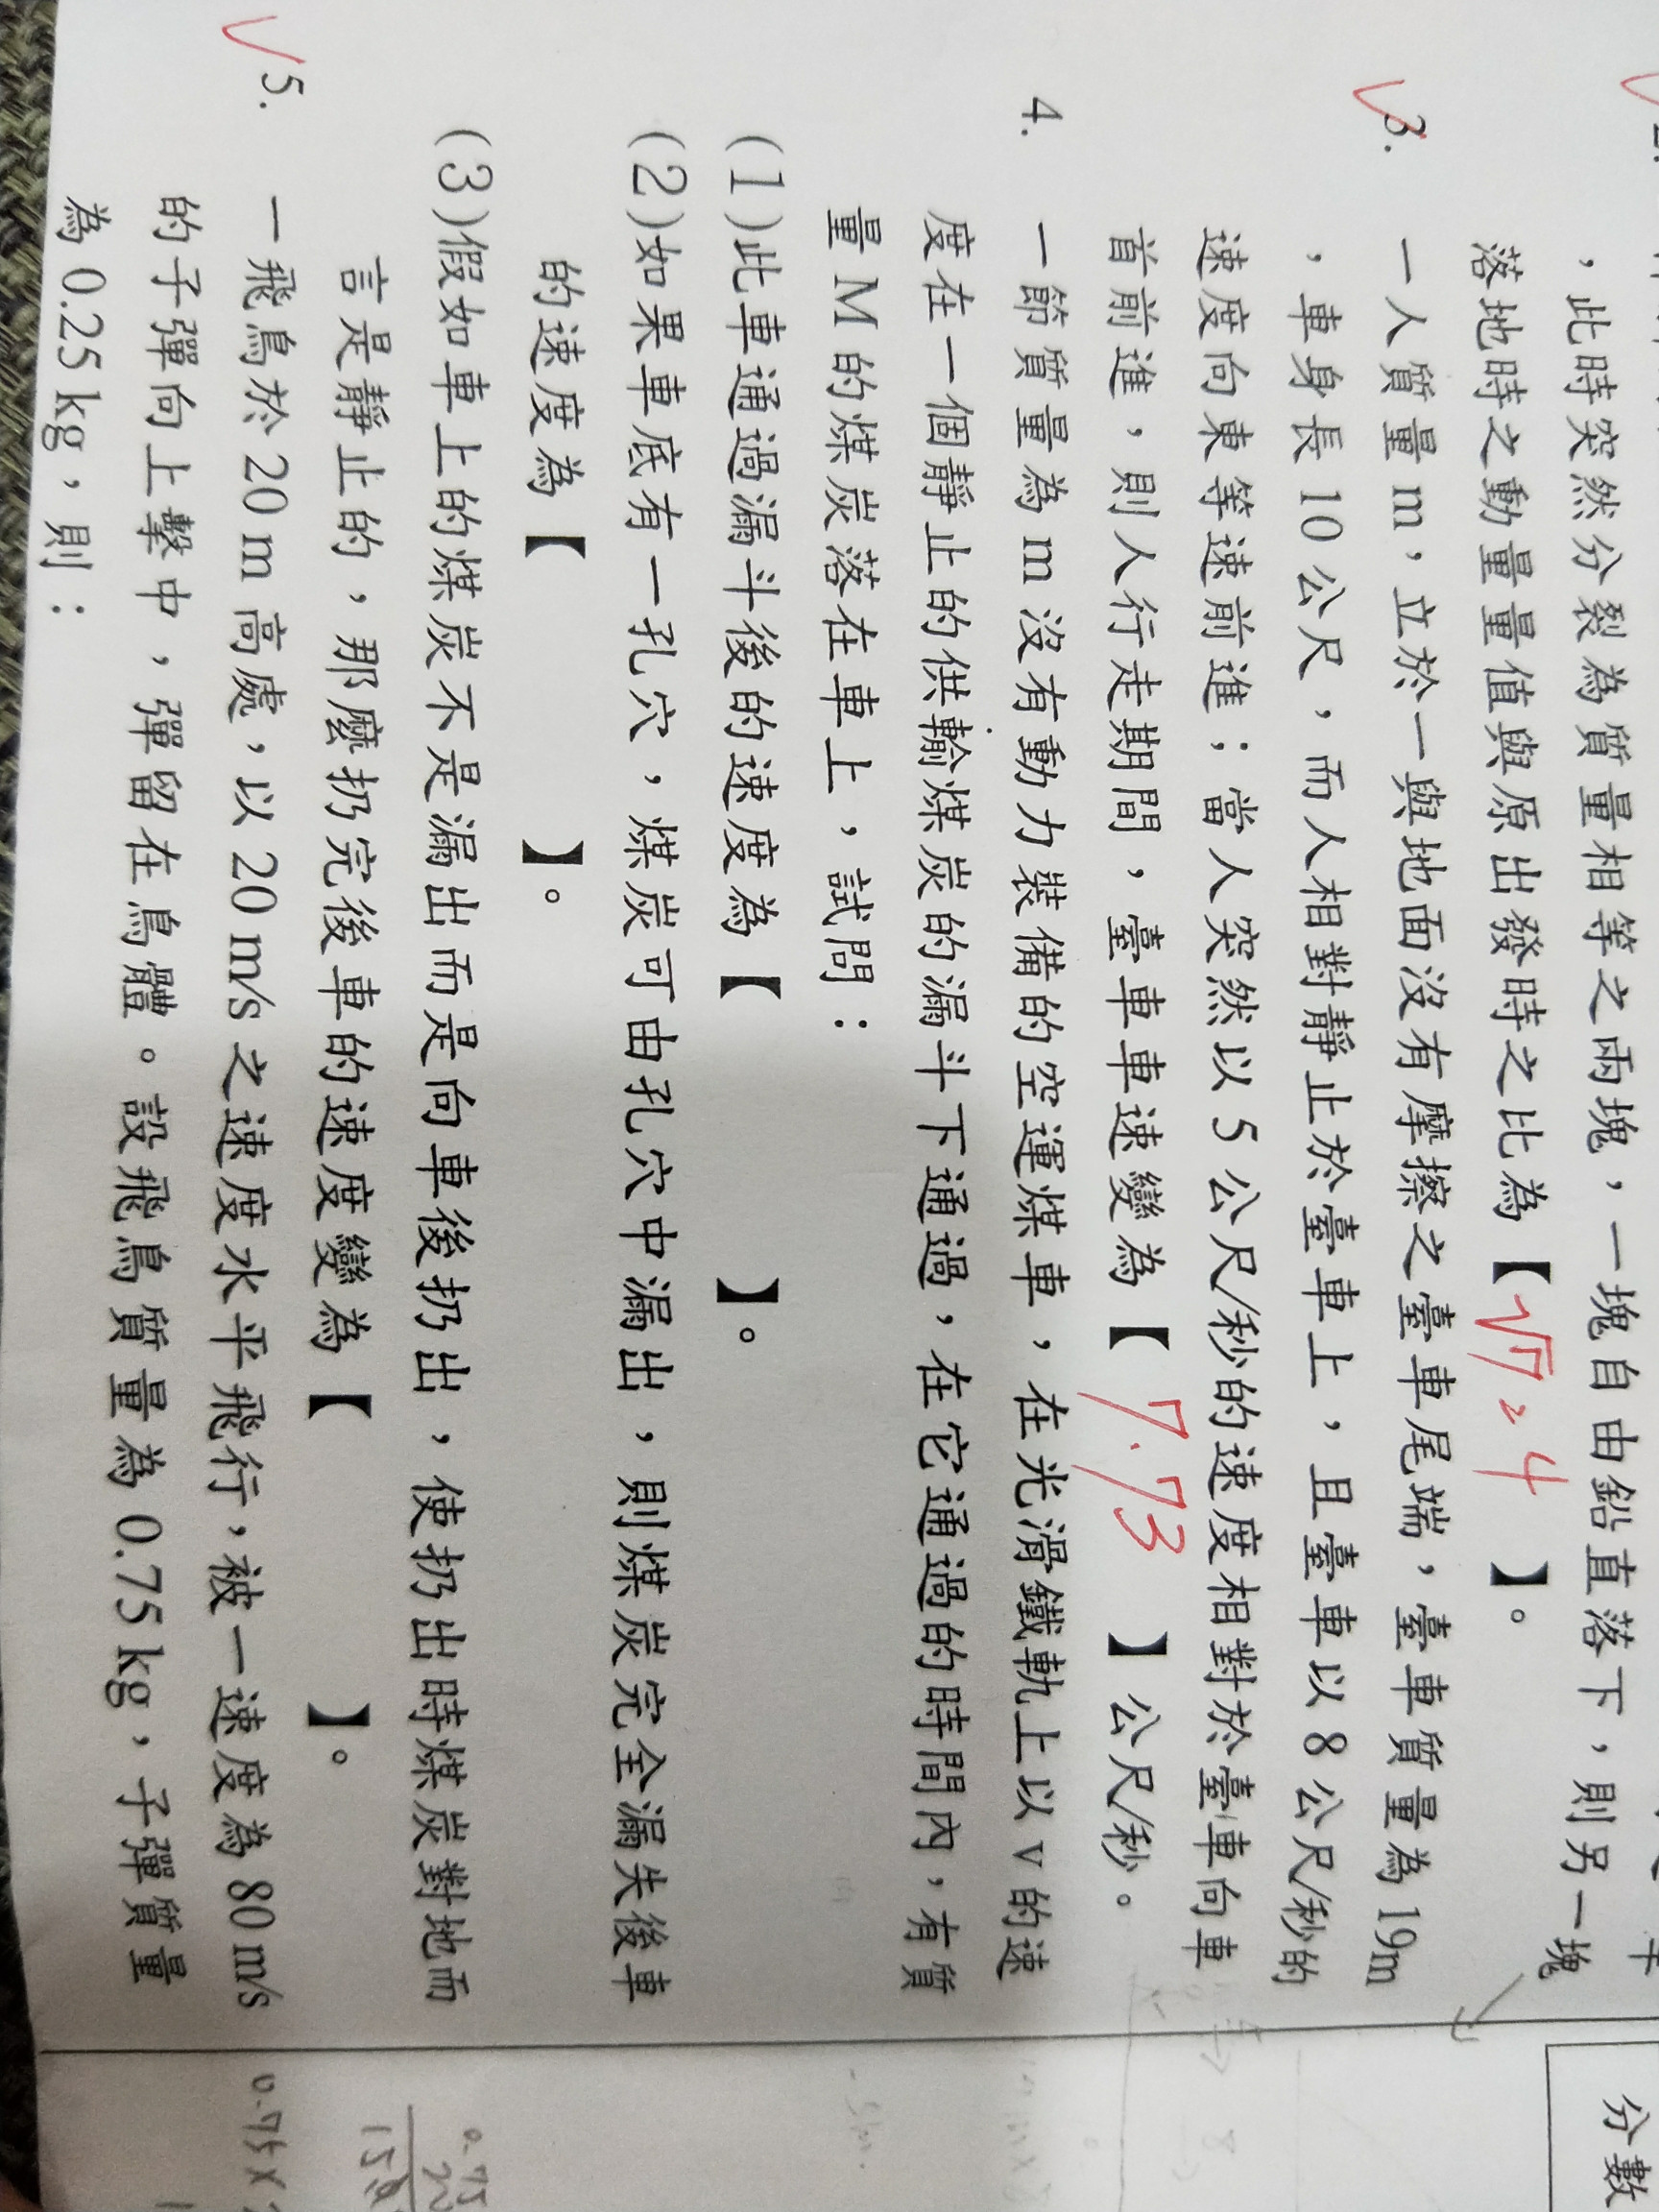 ，此時突然分裂為質量相等之兩塊，一塊自由鉛直落下，則另一塊
落地時之動量量值與原出發時之比為【√7:4】。
3. 一人質量 m，立於一與地面沒有摩擦之臺車尾端，臺車質量為 19m
，車身長 10 公尺，而人相對靜止於臺車上，且臺車以 8 公尺/秒的
速度向東等速前進；當人突然以 5 公尺/秒的速度相對於臺車向車
首前進，則人行走期間，臺車車速變為【7.73】公尺/秒。
4. 一節質量為 m 沒有動力裝備的空運煤車，在光滑鐵軌上以 v 的速
度在一個靜止的供輸煤炭的漏斗下通過，在它通過的時間內，有質
量 M 的煤炭落在車上，試問：
(1)此車通過漏斗後的速度為【 】。
(2)如果車底有一孔穴，煤炭可由孔穴中漏出，則煤炭完全漏失後車
的速度為【 】。
(3)假如車上的煤炭不是漏出而是向車後扔出，使扔出時煤炭對地而
言是靜止的，那麼扔完後車的速度變為【 】。
5. 一飛鳥於 20 m 高處，以 20 m/s 之速度水平飛行，被一速度為 80 m/s
的子彈向上擊中，彈留在鳥體。設飛鳥質量為 0.75 kg，子彈質量
為 0.25 kg，則：
分數
0.75
0.75 ×